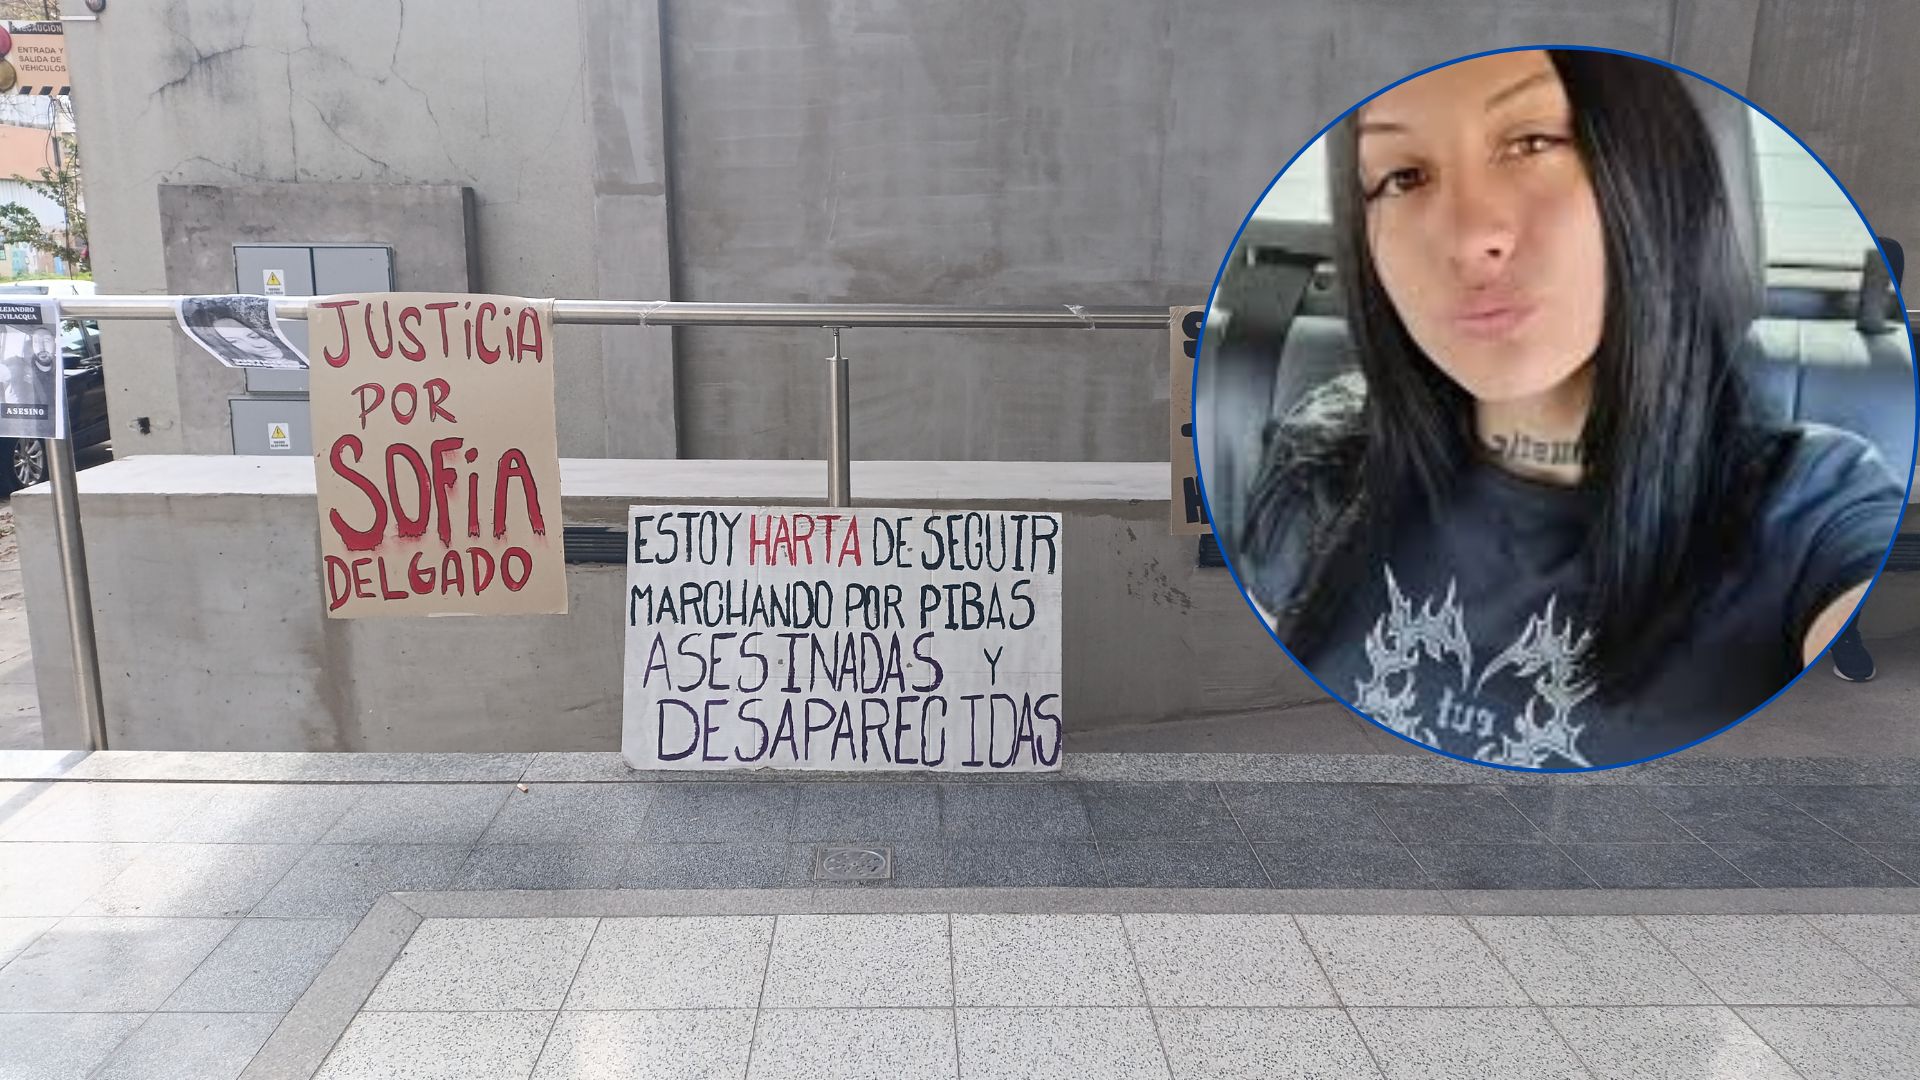 PRECAUCION
ENTRADA Y
SALIDA DE
VEHICULOS
ALEJANDRO
ASESINO
JUSTICIA
POR
SOFIA
DELGADO
ESTOY HARTA DE SEGUIR
MARCHANDO POR PIBAS
ASESINADAS Y
DESAPARECIDAS